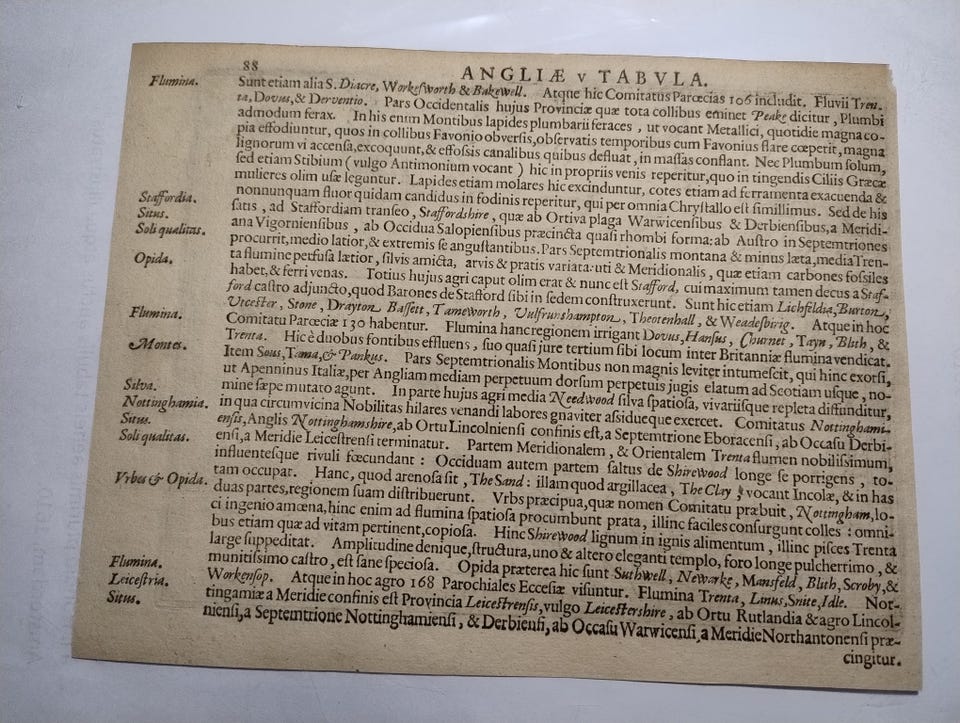 88
ANGLIÆ V TABVLA.
Flumina.
Sunt etiam alia S. Diacre, Workesworth & Bakewell. Atque hic Comitatus Parœcias 106 includit. Fluvii Tren-
ta, Dovus, & Derventio. Pars Occidentalis hujus Provinciæ quæ tota collibus eminet Peake dicitur, Plumbi
admodum ferax. In his enim Montibus lapides plumbarii feraces, ut vocant Metallici, quotidie magna co-
pia effodiuntur, quos in collibus Favonio obversis, observatis temporibus cum Favonius flare cœperit, magna
lignorum vi accensa, excoquunt, & effossis canalibus quibus defluat, in massas conflant. Nec Plumbum solum,
sed etiam Stibium (vulgo Antimonium vocant) hic in propriis venis reperitur, quo in tingendis Ciliis Græcæ
mulieres olim usæ leguntur. Lapides etiam molares hic excinduntur, cotes etiam ad ferramenta exacuenda &
nonnunquam fluor quidam candidus in fodinis reperitur, qui per omnia Chrystallo est simillimus. Sed de his
Staffordia.
satis, ad Staffordiam transeo, Staffordshire, quæ ab Ortiva plaga Warwicensibus & Derbiensibus, a Meridi-
Situs.
ana Vigorniensibus, ab Occidua Salopiensibus præcincta quasi rhombi forma: ab Austro in Septemtriones
Soli qualitas.
procurrit, medio latior, & extremis se angustantibus. Pars Septemtrionalis montana & minus læta, media Tren-
ta flumine perfusa lætior, silvis amicta, arvis & pratis variata: uti & Meridionalis, quæ etiam carbones fossiles
Opida.
habet, & ferri venas. Totius hujus agri caput olim erat & nunc est Stafford, cui maximum tamen decus a Staf-
ford castro adjuncto, quod Barones de Stafford sibi in sedem construxerunt. Sunt hic etiam Lichfeldia, Burton,
Utcester, Stone, Drayton, Bassett, Tameworth, Vulfrunshampton, Theotenhall, & Weadesbirig. Atque in hoc
Flumina.
Comitatu Parœciæ 130 habentur. Flumina hanc regionem irrigant Dovus, Hansus, Churnet, Tayn, Blith, &
Trenta. Hic è duobus fontibus effluens, suo quasi jure tertium sibi locum inter Britanniæ flumina vendicat.
Montes.
Item Sous, Tama, & Pankus. Pars Septemtrionalis Montibus non magnis leviter intumescit, qui hinc exorsi,
ut Apenninus Italiæ, per Angliam mediam perpetuum dorsum perpetuis jugis elatum ad Scotiam usque, no-
Silva.
mine sæpe mutato agunt. In parte hujus agri media Needwood silva spatiosa, vivariisque repleta diffunditur,
Nottinghamia.
in qua circumvicina Nobilitas hilares venandi labores gnaviter assidueque exercet. Comitatus Nottinghami-
Situs.
ensis, Anglis Nottinghamshire, ab Ortu Lincolniensi confinis est, a Septemtrione Eboracensi, ab Occasu Derbi-
Soli qualitas.
ensi, a Meridie Leicestrensi terminatur. Partem Meridionalem, & Orientalem Trenta flumen nobilissimum,
influentesque rivuli fœcundant: Occiduam autem partem saltus de Shirewood longe se porrigens, to-
Vrbes & Opida.
tam occupat. Hanc, quod arenosa sit, The Sand: illam quod argillacea, The Clay vocant Incolæ, & in has
duas partes, regionem suam distribuerunt. Vrbs præcipua, quæ nomen Comitatu præbuit, Nottingham, lo-
ci ingenio amœna, hinc enim ad flumina spatiosa procumbunt prata, illinc faciles consurgunt colles: omni-
bus etiam quæ ad vitam pertinent, copiosa. Hinc Shirewood lignum in ignis alimentum, illinc pisces Trenta
large suppeditat. Amplitudine denique, structura, uno & altero eleganti templo, foro longe pulcherrimo, &
munitissimo castro, est sane speciosa. Opida præterea hic sunt Suthwell, Newarke, Mansfeld, Blith, Scroby, &
Flumina.
Workensop. Atque in hoc agro 168 Parochiales Eccesiæ visuntur. Flumina Trenta, Linus, Snite, Idle. Not-
Leicestria.
tingamiæ a Meridie confinis est Provincia Leicestrensis, vulgo Leicestershire, ab Ortu Rutlandia & agro Lincol-
Situs.
niensi, a Septemtrione Nottinghamiensi, & Derbiensi, ab Occasu Warwicensi, a Meridie Northantonensi præ-
cingitur.